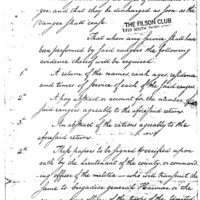 ger, and that they be discharged as soon as the
danger shall cease.
THE FILSON CLUB
That when any service shall have
been performed by said rangers the following
evidence thereof will be required.
1st A return of the names, rank, ages, residence
and times of service of each of the said rangers
2d A pay abstract or account for the number of
said rangers agreeably to the aforesaid return
3d An abstract of the rations agreeably to the
aforesaid return.
4th These papers to be signed & certified upon
oath by the lieutenant of the county, or command-
ing officer of the militia — who will transmit the
same to brigadier general Harmar or the